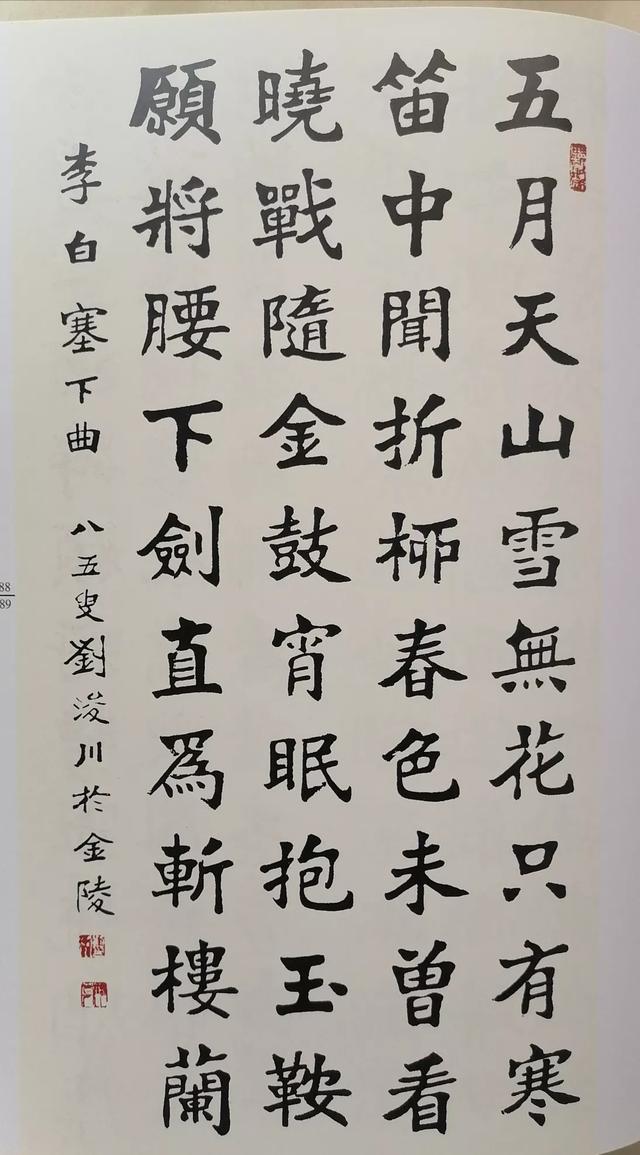 五月天山雪無花只有寒
笛中聞折栁春色未曾看
曉戰隨金鼓宵眠抱玉鞍
願將腰下劍直為斬樓蘭
李白塞下曲 八五叟劉浚川於金陵
88
89